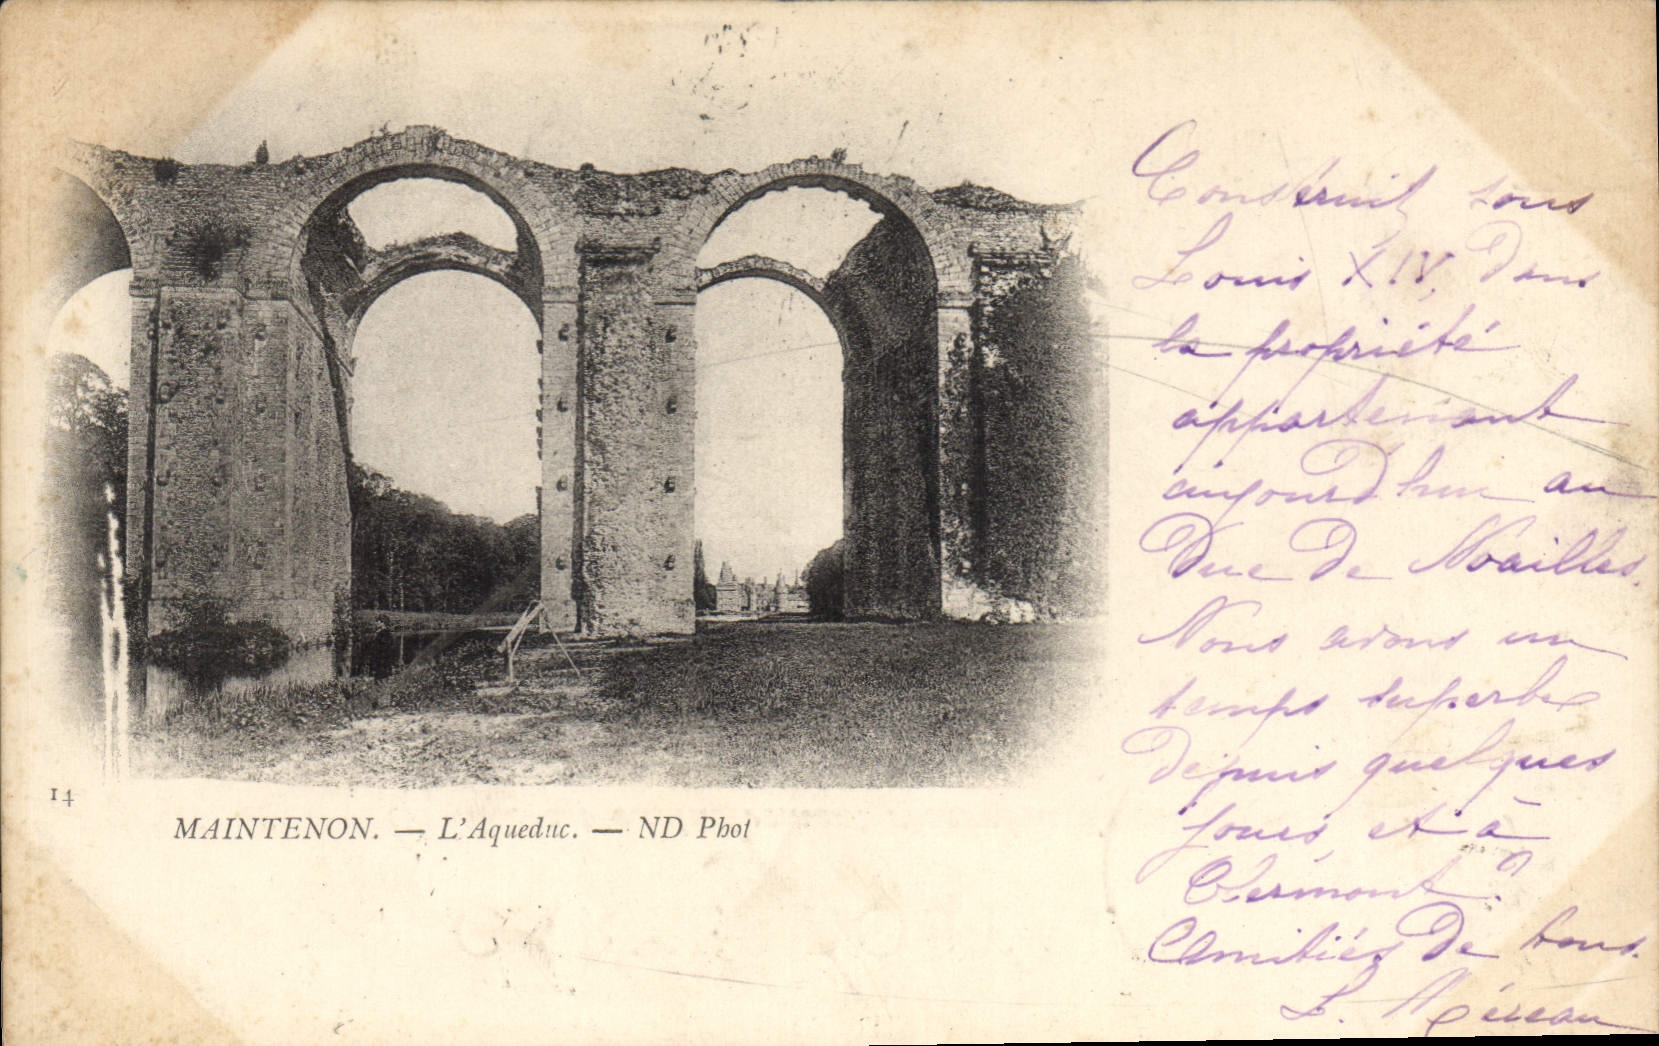 Construit sous
Louis XIV, dans
la propriété
appartenant
aujourd'hui au
Duc de Noailles.
Nous avons un
temps superbe
depuis quelques
jours, et à
Clermont ?
Amitiés de tous.
L. Méreau
14
MAINTENON. — L'Aqueduc. — ND Phot